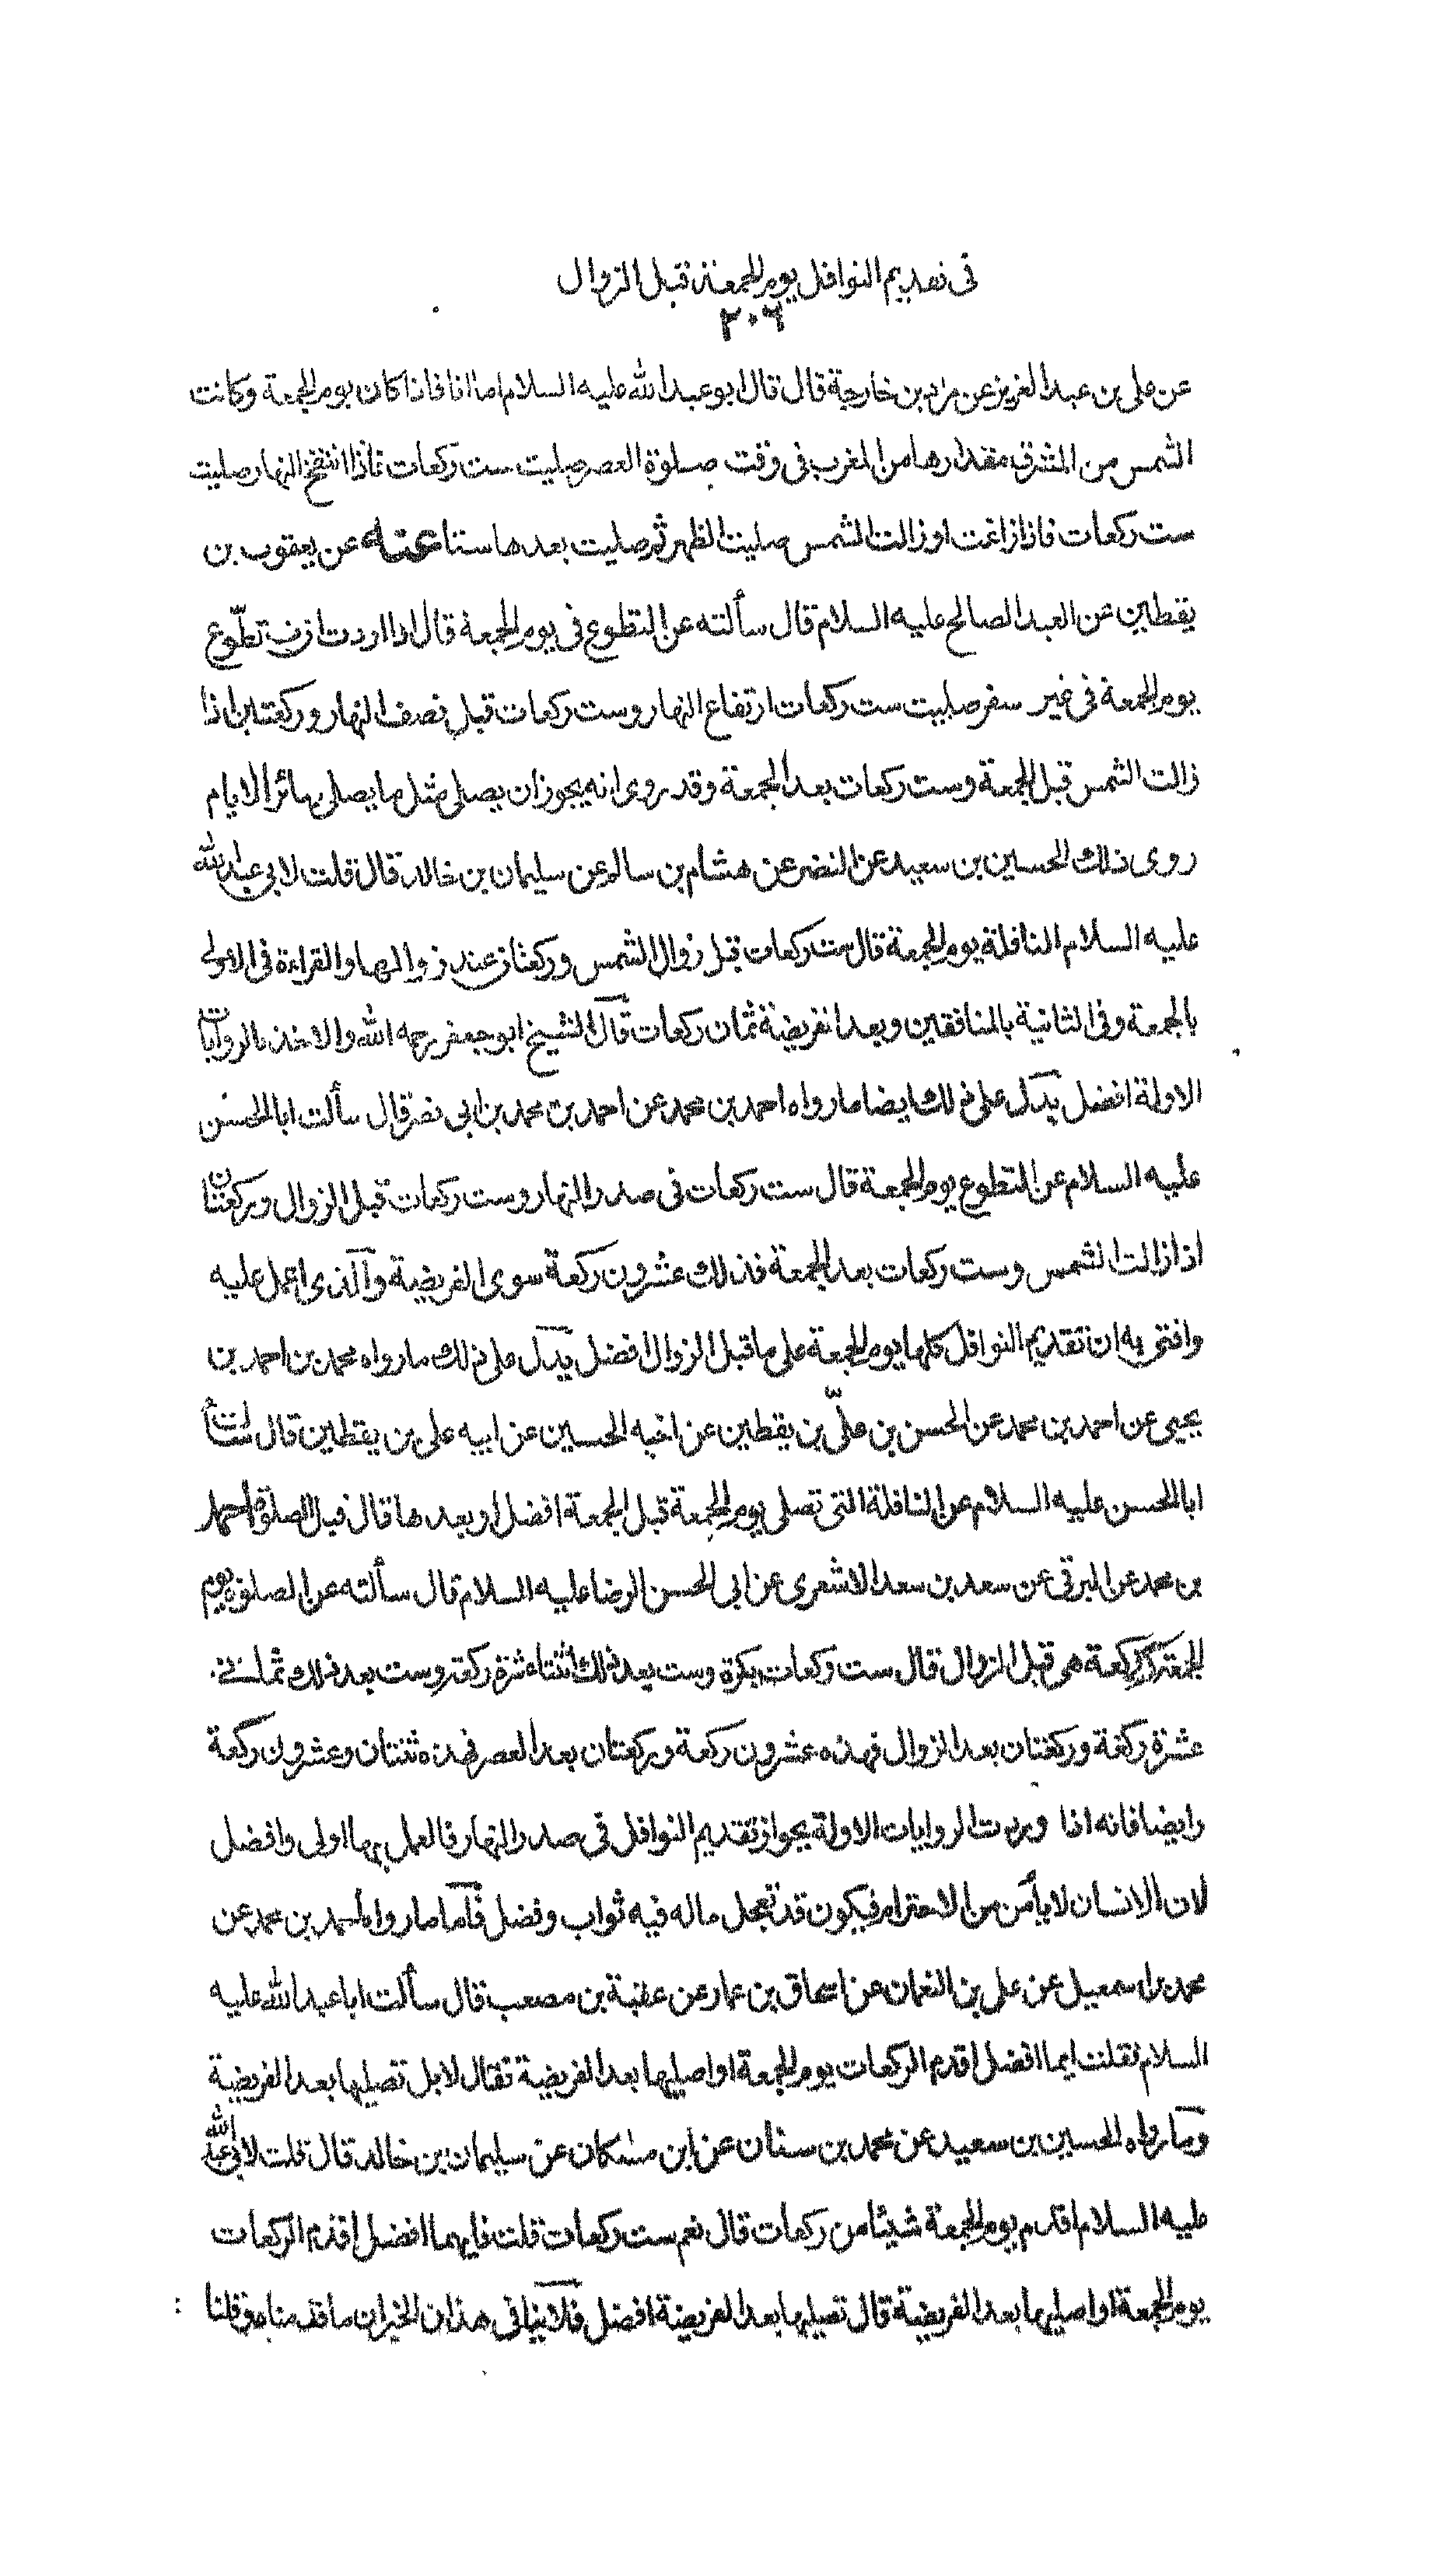 في تقديم النوافل يوم الجمعة قبل الزوال
٢٠٦
عن علي بن عبد العزيز عن مراد بن خارجة قال قال ابو عبد الله عليه السلام اما انا فاذا كان يوم الجمعة وكانت
الشمس من المشرق مقدارها من المغرب في وقت صلوة العصر صليت ست ركعات فاذا انتفخ النهار صليت
ست ركعات فاذا زاغت او زالت الشمس صليت الظهر ثم صليت بعدها ستا عنه عن يعقوب بن
يقطين عن العبد الصالح عليه السلام قال سألته عن التطوع في يوم الجمعة قال اذا اردت ان تطوع
يوم الجمعة في غير سفر صليت ست ركعات ارتفاع النهار وست ركعات قبل نصف النهار وركعتين اذا
زالت الشمس قبل الجمعة وست ركعات بعد الجمعة وقد روى انه يجوز ان يصلى مثل ما يصلى سائر الايام
روى ذلك الحسين بن سعيد عن النضر عن هشام بن سالم عن سليمان بن خالد قال قلت لابي عبد الله
عليه السلام النافلة يوم الجمعة قال ست ركعات قبل زوال الشمس وركعتان عند زوالها والقراءة في الاولى
بالجمعة وفي الثانية بالمنافقين وبعد الفريضة ثمان ركعات قال الشيخ ابو جعفر رحمه الله والاخذ بالروايات
الاولة افضل يدل على ذلك ايضا ما رواه احمد بن محمد عن احمد بن محمد بن ابي نصر قال سألت ابا الحسن
عليه السلام عن التطوع يوم الجمعة قال ست ركعات في صدر النهار وست ركعات قبل الزوال وركعتان
اذا زالت الشمس وست ركعات بعد الجمعة فذلك عشرون ركعة سوى الفريضة والذي اعمل عليه
وافتى به ان تقديم النوافل كلها يوم الجمعة على ما قبل الزوال افضل يدل على ذلك ما رواه محمد بن احمد بن
يحيى عن احمد بن محمد عن الحسن بن علي بن يقطين عن اخيه الحسين عن ابيه علي بن يقطين قال سألت
ابا الحسن عليه السلام عن النافلة التي تصلى يوم الجمعة قبل الجمعة افضل او بعدها قال قبل الصلوة احمد
بن محمد عن البرقي عن سعد بن سعد الاشعري عن ابي الحسن الرضا عليه السلام قال سألته عن الصلوة يوم
الجمعة كم ركعة هي قبل الزوال قال ست ركعات بكرة وست بعد ذلك اثنتاء شرة ركعة وست بعد ذلك ثماني
عشرة ركعة وركعتان بعد الزوال فهذه عشرون ركعة وركعتان بعد العصر فهذه ثنتان وعشرون ركعة
وايضا فانه اذا وردت الروايات الاولة بجواز تقديم النوافل في صدر النهار فالعمل بها اولى وافضل
لان الانسان لا يأمن من الاخترام فيكون قد تعجل ماله فيه ثواب وفضل فاما ما رواه احمد بن محمد عن
محمد بن اسمعيل عن علي بن النعمان عن اسحاق بن عمار عن عقبة بن مصعب قال سألت ابا عبد الله عليه
السلام فقلت ايما افضل اقدم الركعات يوم الجمعة او اصليها بعد الفريضة فقال لا بل تصليها بعد الفريضة
وما رواه الحسين بن سعيد عن محمد بن سنان عن ابن مسكان عن سليمان بن خالد قال قلت لابي عبد الله
عليه السلام اقدم يوم الجمعة شيئا من ركعات قال نعم ست ركعات قلت فايهما افضل اقدم الركعات
يوم الجمعة او اصليها بعد الفريضة قال تصليها بعد الفريضة افضل فلا ينافي هذان الخبران ما قدمناه وقلنا